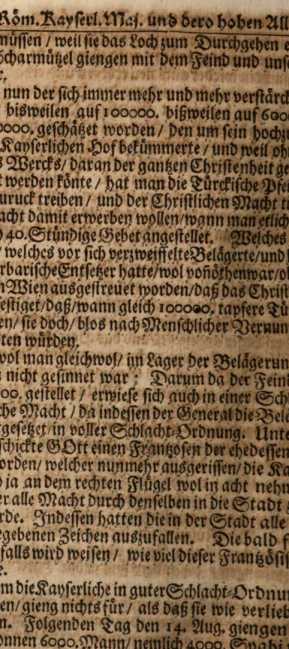 Röm. Kayserl. Maj. und dero hohen All
müssen / weil sie das Loch zum Durchgehen e
charmützel giengen mit dem Feind und uns
nun der sich immer mehr und mehr verstärck
bisweilen auf 100000. bißweilen auf 600
0000. geschätzet worden / den um sein hochm
Kayserlichen Hof bekümmerte / und weil oh
s Wercks / daran der gantzen Christenheit ge
t werden könte / hat man die Türckische Pfei
uruck treiben / und der Christlichen Macht
acht damit erwerben wollen / wann man etlich
40. Stündige Gebet angestellet. Welches
/ welches vor sich verzweiffelte Belägerte / und
rbarische Entsetzer hatte / wol vonöthen war / ob
n Wien ausgestreuet worden / daß das Christ
festiget / daß / wann gleich 100000. tapfere Tü
en / sie doch / blos nach Menschlicher Vernun
ten würden.
wol man gleichwol / im Lager der Belägerun
nicht gesinnet war ; Darum da der Fein
00. gestellet / erwiese sich auch in einer Sch
che Macht / da indessen der General die Bel
gesetzet / in voller Schlacht-Ordnung. Unte
schickte GOtt einen Frantzosen der ehedessen
orden / welcher nunmehr ausgerissen / die Ka
ja an dem rechten Flügel wol in acht nehm
er alle Macht durch denselben in die Stadt
rde. Indessen hatten die in der Stadt alle
gebenen Zeichen auszufallen. Die bald f
falls wird weisen / wie viel dieser Frantzösis
m die Kayserliche in guter Schlacht-Ordnu
en / gieng nichts für / als daß sie wie verlieb
n. Folgenden Tag den 14. Aug. giengen
onnen 6000. Mann / nemlich 4000. Spahi